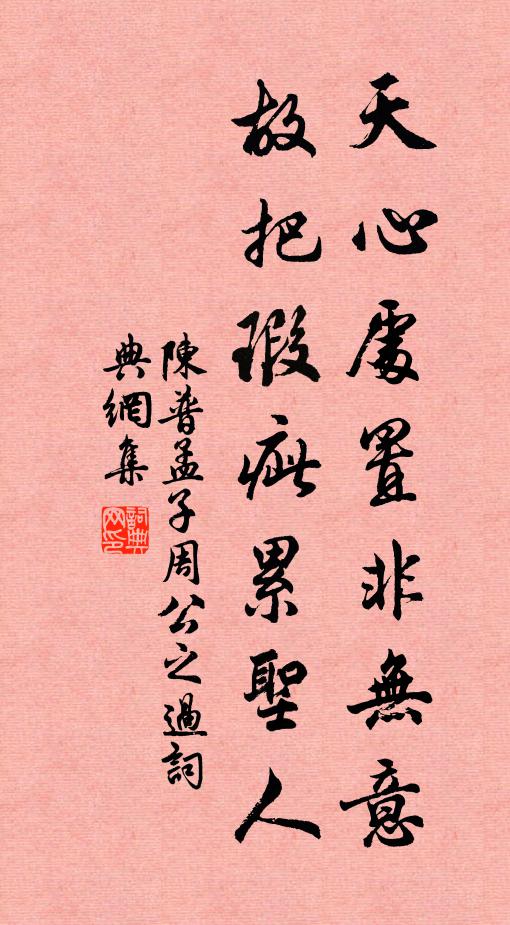 天心處置非無意
故把瑕疵累聖人
陳普孟子周公之過詞
典網集
詞典
网印